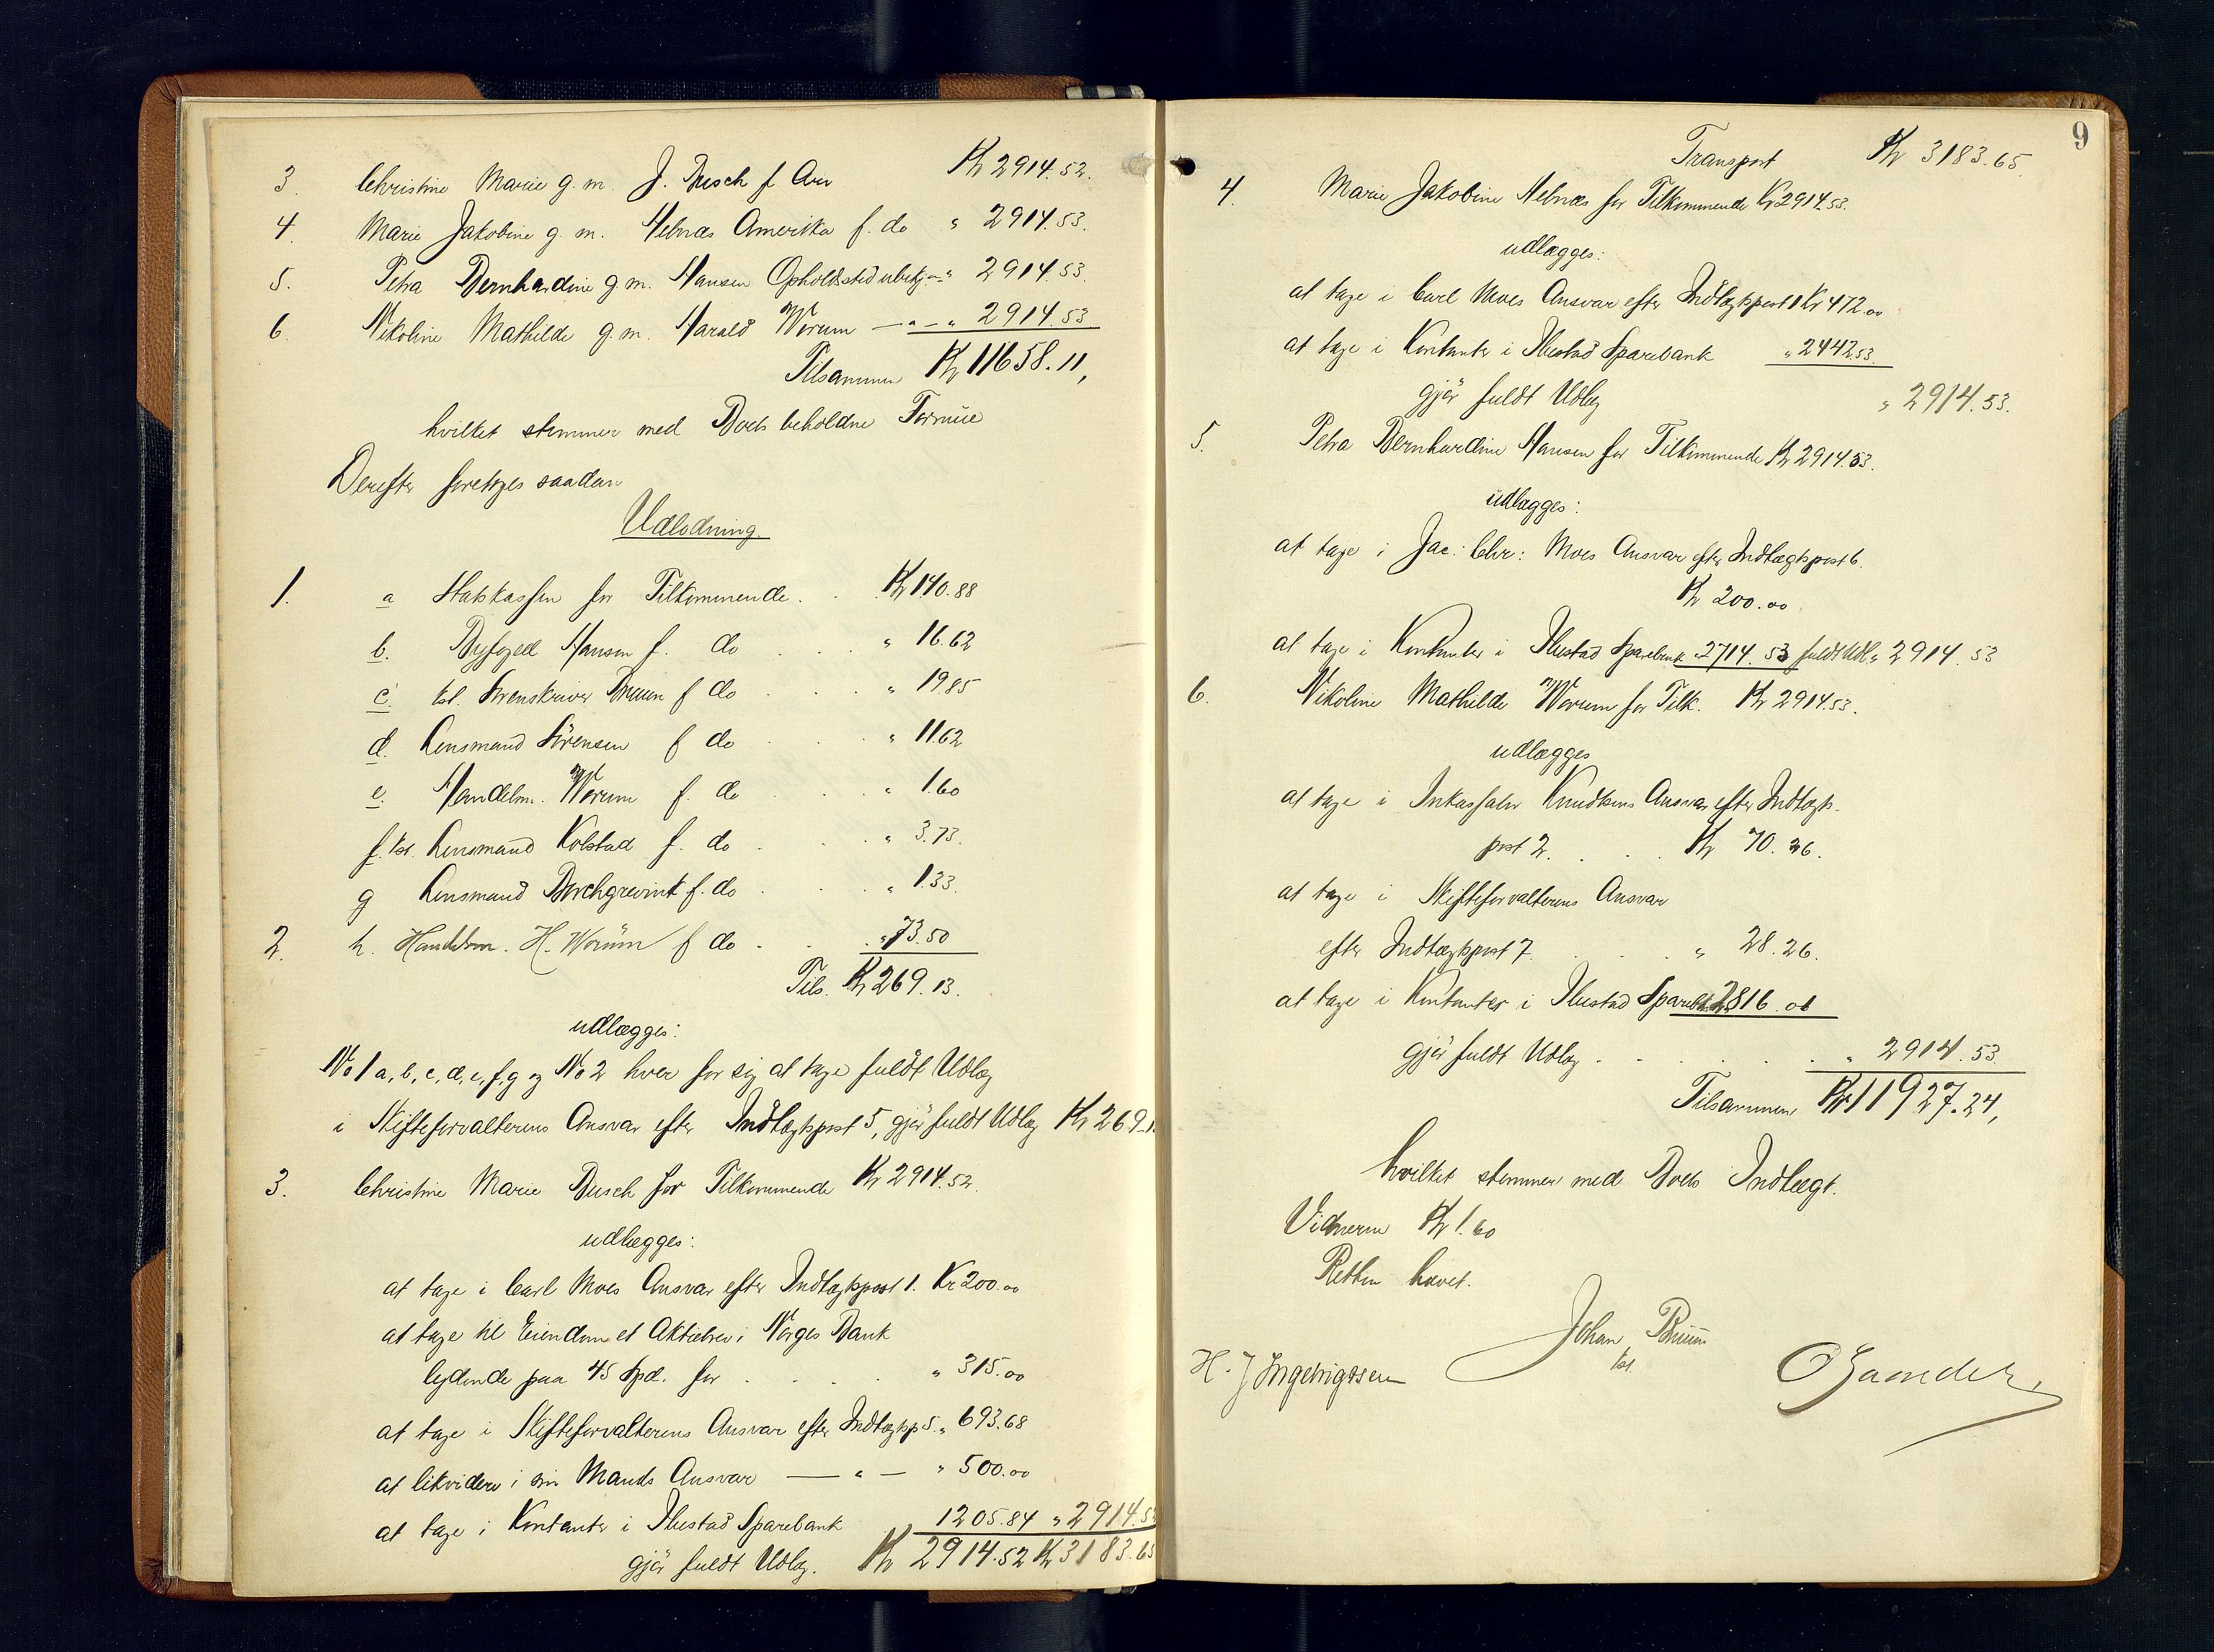 3. Christine Marie g. m. J. Busch f Arv Kr 2914.52.
4. Marie Jakobine g. m. Nebnæs Amerika f. do " 2914.53.
5. Petra Bernhardine g. m. Hansen Opholdssted ubekj. — " 2914.53.
6. Nikoline Mathilde g. m. Harald Worum — " — " 2914.53
Tilsammen Kr 11658.11,
hvilket stemmer med Boets beholdne Formue
Derefter foretoges saadan
Udlodning.
1. a Statskassen for Tilkommende . . Kr 140.88
b. Byfoged Hansen f. do . . . " 16.62
c. kst. Sorenskriver Bruun f do . . . " 19.85
d. Lensmand Sörensen f do . . . " 11.62
e. Handelsm. Worum f. do . . . " 1.60
f. kst. Lensmand Kolstad f. do . . . " 3.73.
g Lensmand Borchgrevink f. do . . . " 1.33.
2. h. Handelsm. H. Worum f do . . . " 73.50
Tils. Kr 269.13.
udlægges:
No 1 a, b, c, d, e, f, g og No 2 hver for sig at tage fuldt Udlæg
i Skifteforvalterens Ansvar efter Indtægtspost 5, gjør fuldt Udlæg Kr 269.1
3. Christine Marie Busch for Tilkommende Kr 2914.52.
udlægges:
at tage i Carl Moes Ansvar efter Indtægtspost 1. Kr 200.00
at tage til Eiendom et Aktiebrev i Norges Bank
lydende paa 45 Spd. for . . . . " 315.00
at tage i Skifteforvalterens Ansvar efter Indtægtsp 5. " 693.68
at likvidere i sin Mands Ansvar — " — " 500.00
at tage i Kontanter i Ibestad Sparebank 1205.84 " 2914.52
gjør fuldt Udlæg. Kr 2914.52 Kr 3183.65
9
Transport Kr 3183.65.
4. Marie Jakobine Nebnæs for Tilkommende Kr 2914.53.
udlægges:
at tage i Carl Moes Ansvar efter Indtægtspost 1 Kr 472.00
at tage i Kontanter i Ibestad Sparebank " 2442.53.
gjør fuldt Udlæg " 2914.53.
5. Petra Bernhardine Hansen for Tilkommende Kr 2914.53.
udlægges:
at tage i Jac: Chr: Moes Ansvar efter Indtægtspost 6.
Kr 200.00
at tage i Kontanter i Ibestad Sparebank " 2714.53 fuldt Udl. " 2914.53
6. Nikoline Mathilde Worum for Tilk. Kr 2914.53.
udlægges
at tage i Inkassator Knudtsens Ansvar efter Indtægts-
post 2. . . . Kr 70.26.
at tage i Skifteforvalterens Ansvar
efter Indtægtspost 7. . . . " 28.26.
at tage i Kontanter i Ibestad Spareb. 2816.01
gjør fuldt Udlæg . . . . . " 2914.53
Tilsammen Kr 11927.24,
hvilket stemmer med Boets Indtægt.
Vidnerne Kr 1.60
Retten hævet.
Johan Bruun
kst.
H. J Ingebrigtsen